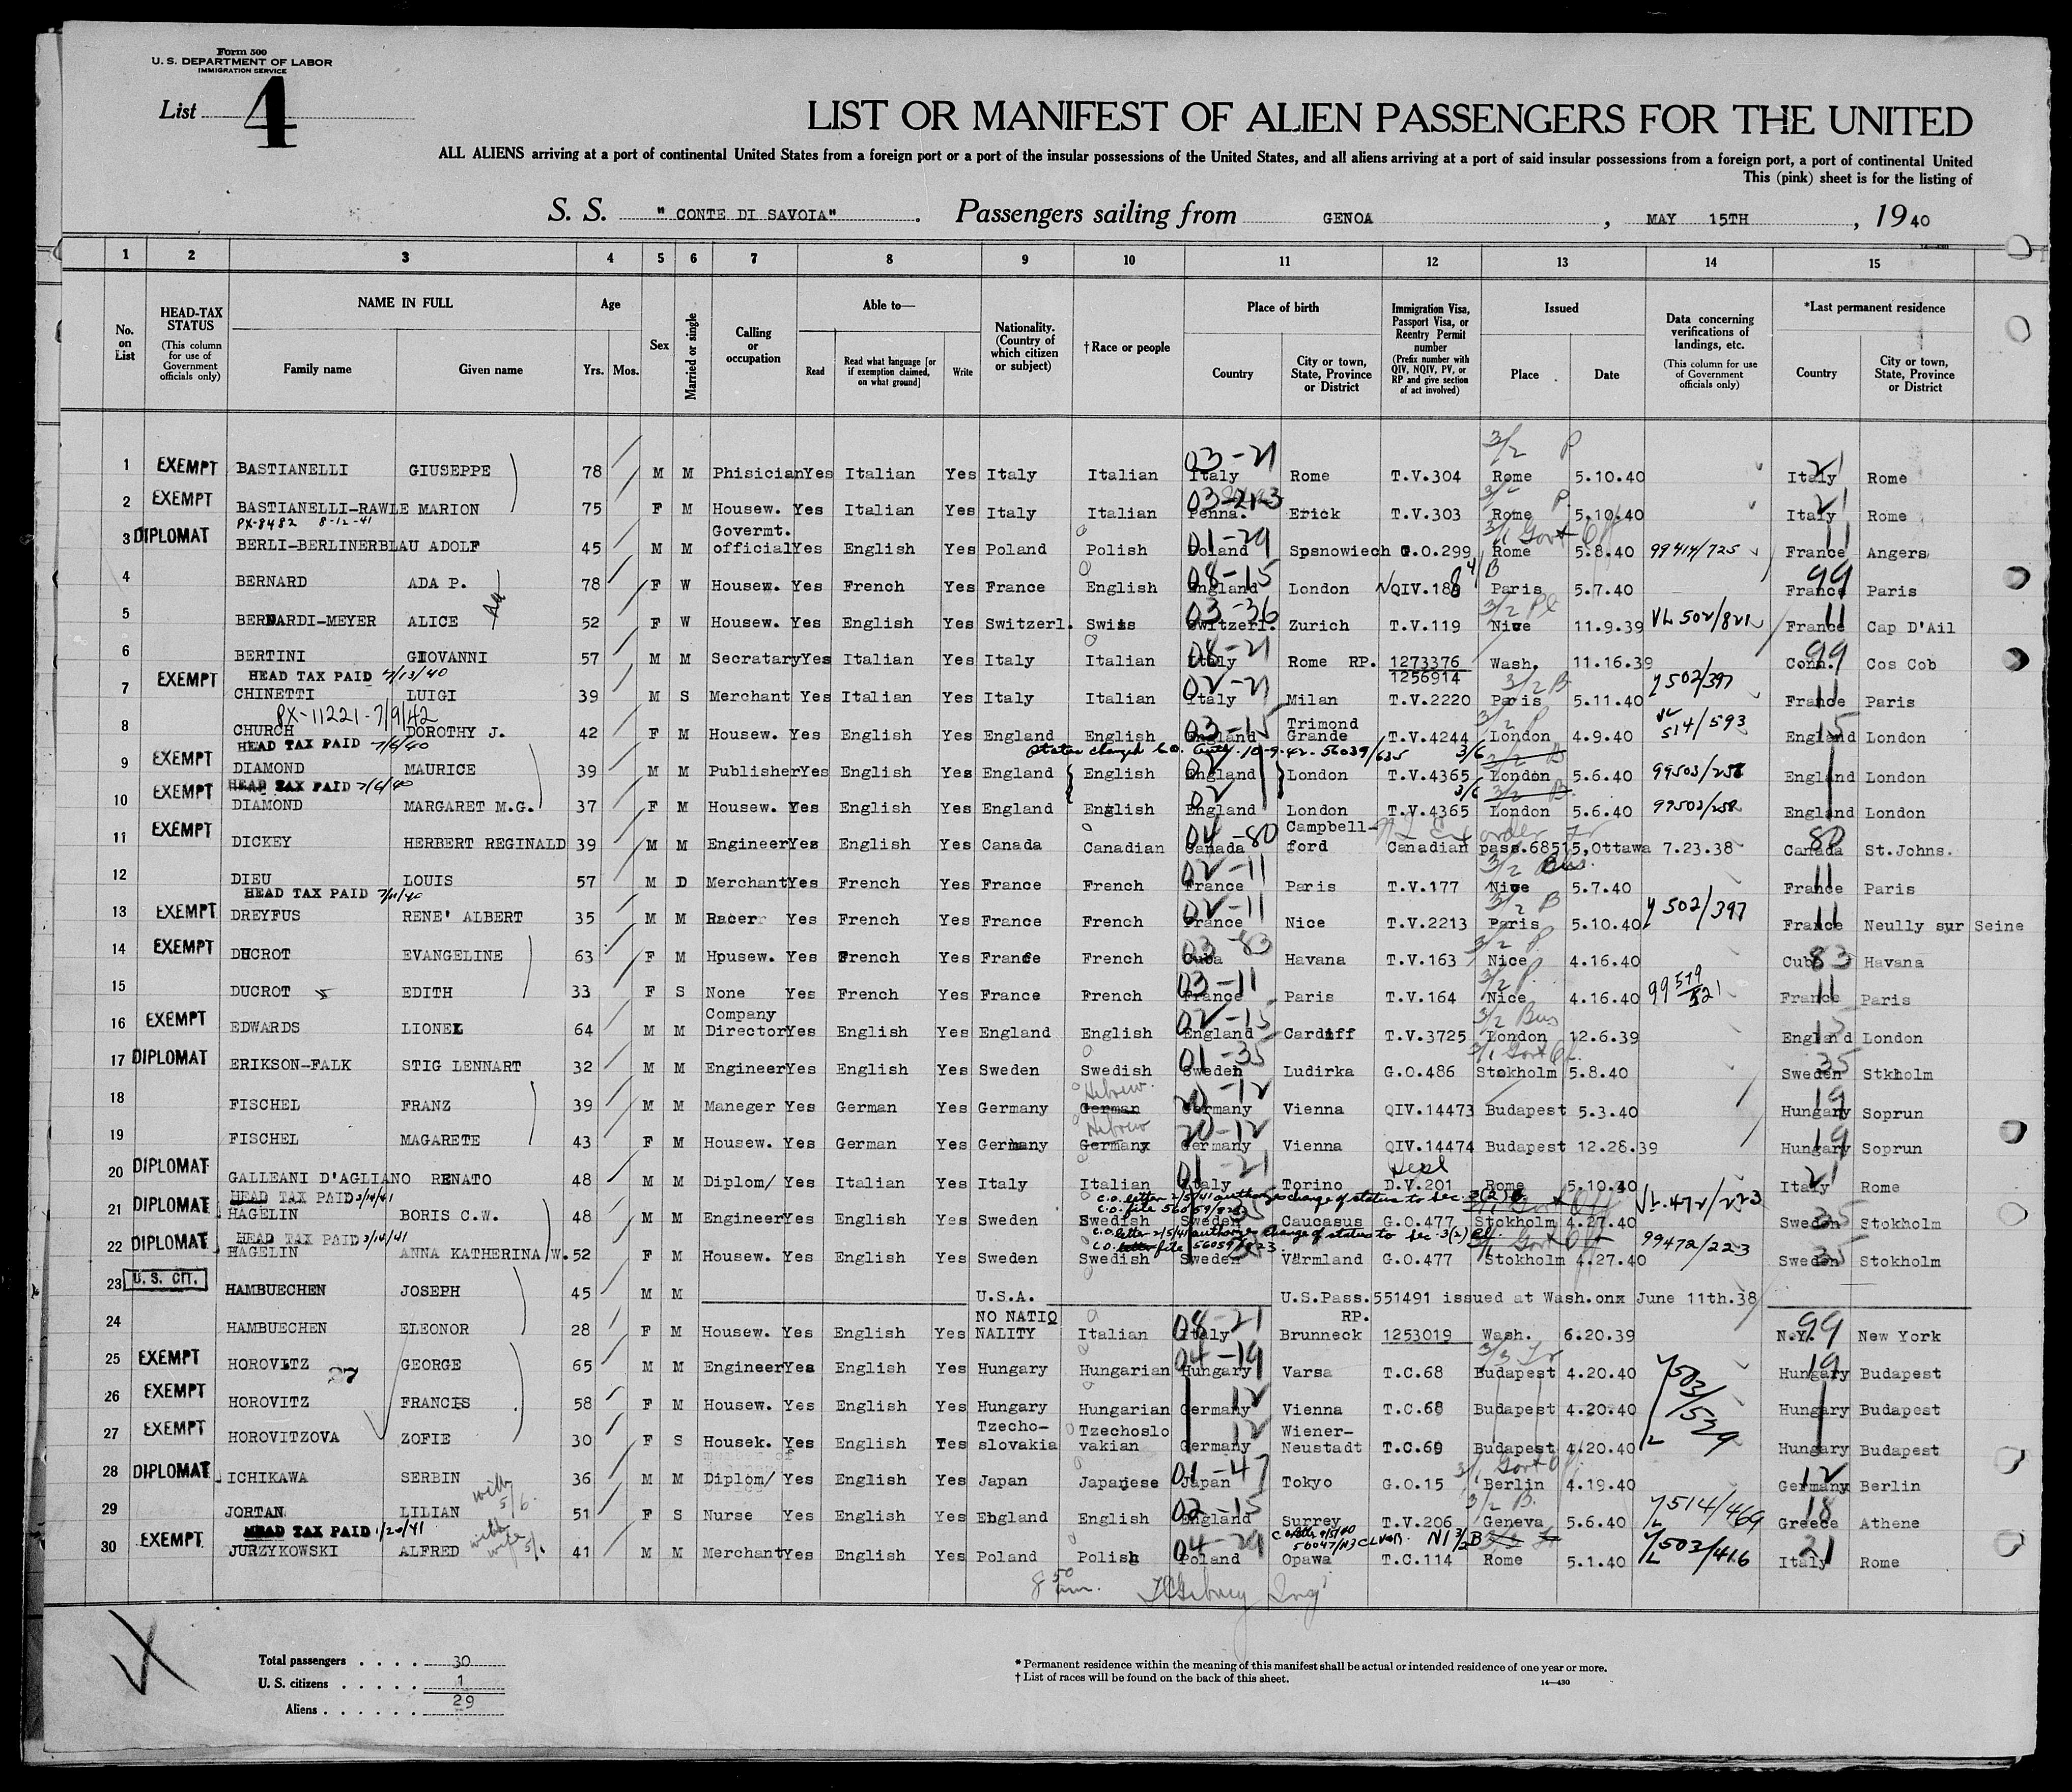 Form 500
U. S. DEPARTMENT OF LABOR
IMMIGRATION SERVICE
List 4
LIST OR MANIFEST OF ALIEN PASSENGERS FOR THE UNITED
ALL ALIENS arriving at a port of continental United States from a foreign port or a port of the insular possessions of the United States, and all aliens arriving at a port of said insular possessions from a foreign port, a port of continental United
This (pink) sheet is for the listing of
S. S. " CONTE DI SAVOIA" . Passengers sailing from GENOA , MAY 15TH , 1940
1 2 3 4 5 6 7 8 9 10 11 12 13 14 15
No. on List
HEAD-TAX STATUS (This column for use of Government officials only)
NAME IN FULL Family name Given name
Age Yrs. Mos.
Sex
Married or single
Calling or occupation
Able to— Read Read what language [or if exemption claimed, on what ground] Write
Nationality. (Country of which citizen or subject)
†Race or people
Place of birth Country City or town, State, Province or District
Immigration Visa, Passport Visa, or Reentry Permit number (Prefix number with QIV, NQIV, PV, or RP and give section of act involved)
Issued Place Date
Data concerning verifications of landings, etc. (This column for use of Government officials only)
*Last permanent residence Country City or town, State, Province or District
3/2 P
1 EXEMPT BASTIANELLI GIUSEPPE 78 M M Phisician Yes Italian Yes Italy Italian 03-21 Italy Rome T.V.304 Rome 5.10.40 21 Italy Rome
2 EXEMPT BASTIANELLI-RAWLE MARION 75 F M Housew. Yes Italian Yes Italy Italian Penna. Erick T.V.303 Rome 5.10.40 21 Italy Rome
PX-8482 8-12-41
3 DIPLOMAT BERLI-BERLINERBLAU ADOLF 45 M M Govermt. official Yes English Yes Poland Polish 01-29 Poland Spsnowiech G.O.299 Rome 3/1 Govt Off 5.8.40 99414/725 11 France Angers
4 BERNARD ADA P. 78 F W Housew. Yes French Yes France English 08-15 England London NQIV.188 Paris 5.7.40 99 France Paris
5 BERNARDI-MEYER ALICE 52 F W Housew. Yes English Yes Switzerl. Swiss 03-36 Switzerl. Zurich T.V.119 Nice 11.9.39 VL 502/821 11 France Cap D'Ail
6 BERTINI GIOVANNI 57 M M Secratary Yes Italian Yes Italy Italian 08-21 Italy Rome RP. 1273376 1256914 Wash. 11.16.39 99 Conn. Cos Cob
HEAD TAX PAID 7/13/40
7 EXEMPT CHINETTI LUIGI 39 M S Merchant Yes Italian Yes Italy Italian 02-21 Italy Milan T.V.2220 3/2 B Paris 5.11.40 502/397 11 France Paris
PX-11221-7/9/42
8 CHURCH DOROTHY J. 42 F M Housew. Yes English Yes England English 03-15 England Trimond Grande T.V.4244 3/2 P London 4.9.40 514/593 15 England London
HEAD TAX PAID 7/6/40
9 EXEMPT DIAMOND MAURICE 39 M M Publisher Yes English Yes England English 02 England London T.V.4365 3/6 London 5.6.40 99503/258 England London
HEAD TAX PAID 7/6/40
10 EXEMPT DIAMOND MARGARET M.G. 37 F M Housew. Yes English Yes England English 02 England London T.V.4365 3/6 London 5.6.40 99503/258 England London
11 EXEMPT DICKEY HERBERT REGINALD 39 M M Engineer Yes English Yes Canada Canadian 04-80 Canada Campbell-ford Canadian pass.68515,Ottawa 7.23.38 80 Canada St.Johns.
12 DIEU LOUIS 57 M D Merchant Yes French Yes France French 02-11 France Paris T.V.177 3/2 Bus. Nice 5.7.40 11 France Paris
HEAD TAX PAID
13 EXEMPT DREYFUS RENE' ALBERT 35 M M Racer Yes French Yes France French 02-11 France Nice T.V.2213 3/2 B Paris 5.10.40 502/397 11 France Neully sur Seine
14 EXEMPT DUCROT EVANGELINE 63 F M Hpusew. Yes French Yes France French 03-83 Cuba Havana T.V.163 3/2 P. Nice 4.16.40 83 Cuba Havana
15 DUCROT EDITH 33 F S None Yes French Yes France French 03-11 France Paris T.V.164 3/2 P. Nice 4.16.40 11 France Paris
16 EXEMPT EDWARDS LIONEL 64 M M Company Director Yes English Yes England English 02-15 England Cardiff T.V.3725 3/2 Bus London 12.6.39 15 England London
17 DIPLOMAT ERIKSON-FALK STIG LENNART 32 M M Engineer Yes English Yes Sweden Swedish 01-35 Sweden Ludirka G.O.486 Stokholm 5.8.40 35 Sweden Stkholm
18 FISCHEL FRANZ 39 M M Maneger Yes German Yes Germany German Hebrew 20-12 Germany Vienna QIV.14473 Budapest 5.3.40 19 Hungary Soprun
19 FISCHEL MAGARETE 43 F M Housew. Yes German Yes Germany German Hebrew 20-12 Germany Vienna QIV.14474 Budapest 12.28.39 19 Hungary Soprun
20 DIPLOMAT GALLEANI D'AGLIANO RENATO 48 M M Diplom/ Yes Italian Yes Italy Italian 01-21 Italy Torino D.V.201 Rome 5.10.40 21 Italy Rome
HEAD TAX PAID 3/14/41 C.O. letter 2/5/41 change of status to Sec. 3(2)
21 DIPLOMAT HAGELIN BORIS C.W. 48 M M Engineer Yes English Yes Sweden Swedish Sweden Caucasus G.O.477 Stokholm 4.27.40 VL.472/223 35 Sweden Stokholm
HEAD TAX PAID 3/14/41 C.O. letter 2/5/41 change of status to Sec. 3(2)
22 DIPLOMAT HAGELIN ANNA KATHERINA W. 52 F M Housew. Yes English Yes Sweden Swedish Sweden Värmland G.O.477 Stokholm 4.27.40 99472/223 35 Sweden Stokholm
23 U. S. CIT. HAMBUECHEN JOSEPH 45 M M U.S.A. U.S.Pass.551491 issued at Wash.onx June 11th.38
24 HAMBUECHEN ELEONOR 28 F M Housew. Yes English Yes NO NATIO NALITY Italian 08-21 Italy Brunneck RP. 1253019 Wash. 6.20.39 99 N.Y. New York
25 EXEMPT HOROVITZ GEORGE 65 M M Engineer Yes English Yes Hungary Hungarian 04-19 Hungary Varsa T.C.68 Budapest 4.20.40 503/529 19 Hungary Budapest
26 EXEMPT HOROVITZ FRANCIS 58 F M Housew. Yes English Yes Hungary Hungarian 12 Germany Vienna T.C.68 Budapest 4.20.40 Hungary Budapest
27 EXEMPT HOROVITZOVA ZOFIE 30 F S Housek. Yes English Yes Tzecho-slovakia Tzechoslo vakian 12 Germany Wiener-Neustadt T.C.69 Budapest 4.20.40 Hungary Budapest
28 DIPLOMAT ICHIKAWA SERBIN 36 M M Diplom/ Yes English Yes Japan Japanese 01-47 Japan Tokyo G.O.15 Berlin 4.19.40 12 Germany Berlin
29 JORTAN LILIAN 51 F S Nurse Yes English Yes England English 02-15 England Surrey T.V.206 3/2 B. Geneva 5.6.40 514/469 18 Greece Athene
HEAD TAX PAID 1/20/41
30 EXEMPT JURZYKOWSKI ALFRED 41 M M Merchant Yes English Yes Poland Polish 04-29 Poland Opawa T.C.114 Rome 5.1.40 503/416 21 Italy Rome
Total passengers . . . . 30
U. S. citizens . . . . . 1
Aliens . . . . . . 29
* Permanent residence within the meaning of this manifest shall be actual or intended residence of one year or more.
† List of races will be found on the back of this sheet.
14—430